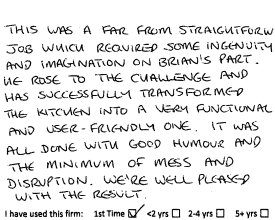 THIS WAS A FAR FROM STRAIGHTFORW
JOB WHICH REQUIRED SOME INGENUITY
AND IMAGINATION ON BRIAN'S PART.
HE ROSE TO THE CHALLENGE AND
HAS SUCCESSFULLY TRANSFORMED
THE KITCHEN INTO A VERY FUNCTIONAL
AND USER-FRIENDLY ONE. IT WAS
ALL DONE WITH GOOD HUMOUR AND
THE MINIMUM OF MESS AND
DISRUPTION. WE'RE WELL PLEASED
WITH THE RESULT.
I have used this firm: 1st Time ☑ <2 yrs ☐ 2-4 yrs ☐ 5+ yrs ☐